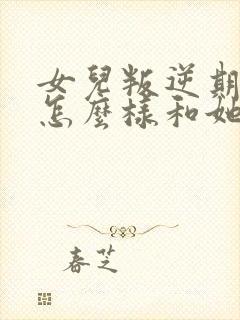 女兒叛逆期
怎麼樣和她
春芝